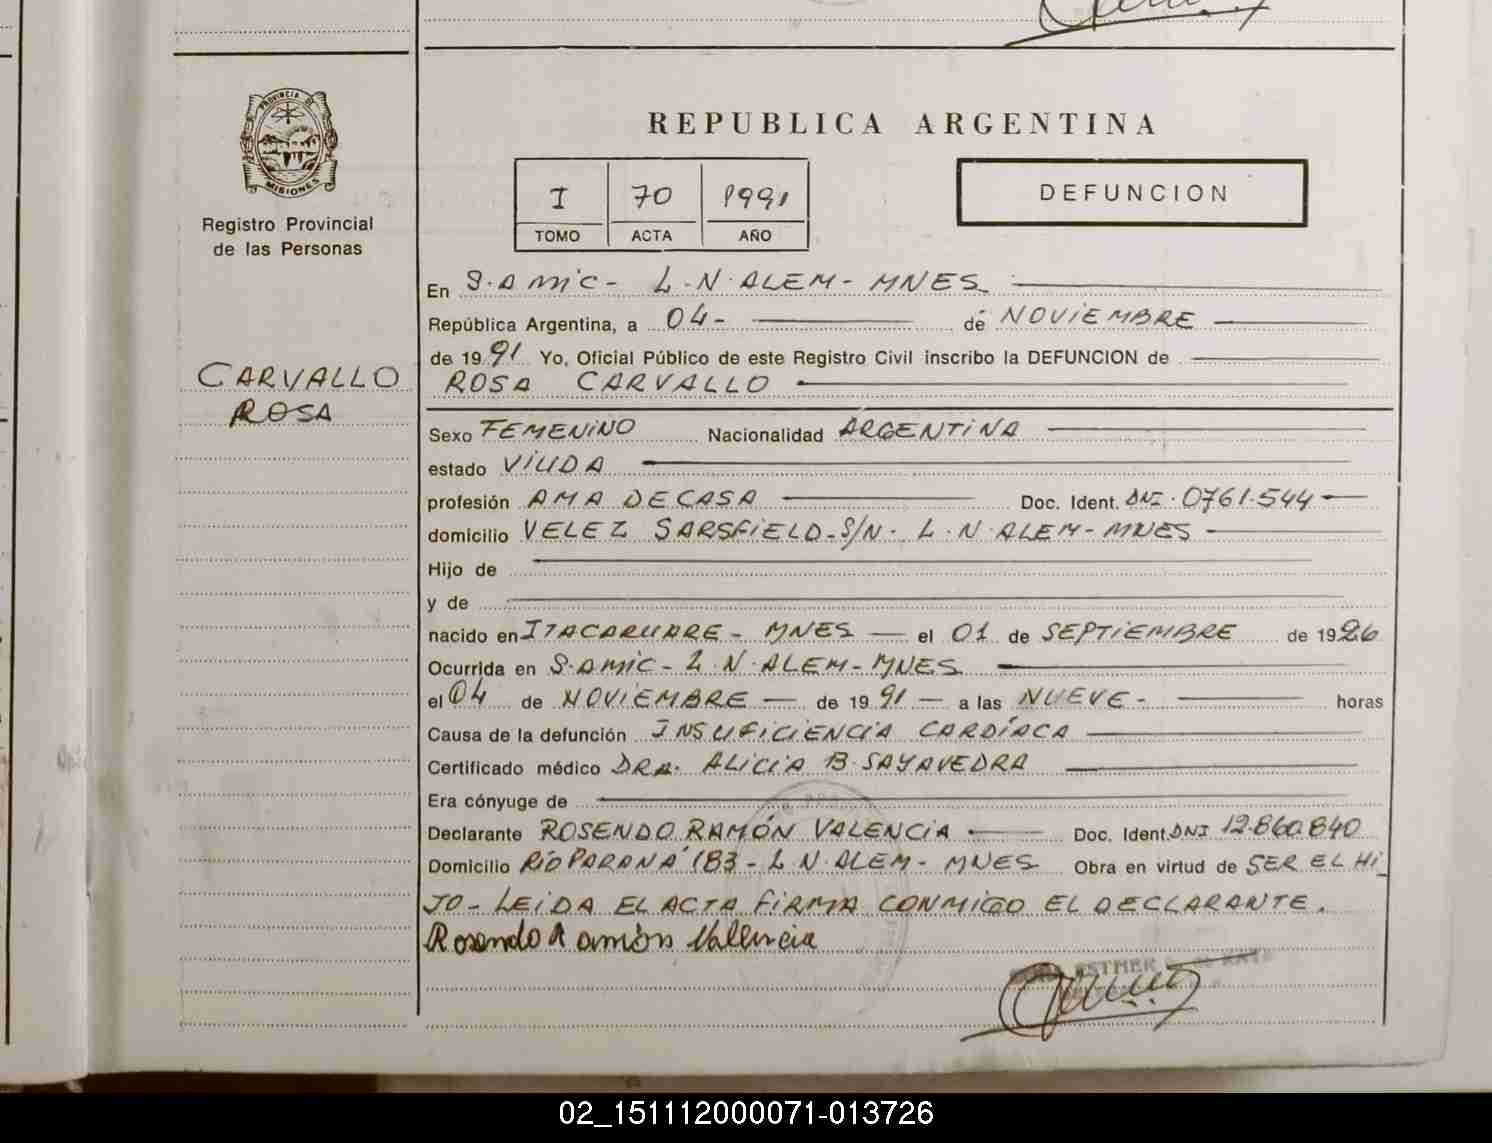 PROVINCIA DE
MISIONES
Registro Provincial
de las Personas
CARVALLO
ROSA
REPUBLICA ARGENTINA
I 70 1991
TOMO ACTA AÑO
DEFUNCION
En S. Amic - L. N. ALEM - MNES
República Argentina, a 04 - de NOVIEMBRE
de 1991 Yo, Oficial Público de este Registro Civil inscribo la DEFUNCION de
ROSA CARVALLO
Sexo FEMENINO Nacionalidad ARGENTINA
estado VIUDA
profesión AMA DE CASA Doc. Ident. DNI. 0761.544
domicilio VELEZ SARSFIELD - S/N - L. N. ALEM - MNES
Hijo de
y de
nacido en ITACARUARE - MNES el 01 de SEPTIEMBRE de 1926
Ocurrida en S. AMIC - L. N. ALEM - MNES
el 04 de NOVIEMBRE de 1991 a las NUEVE - horas
Causa de la defunción INSUFICIENCIA CARDÍACA
Certificado médico DRA. ALICIA B. SAYAVEDRA
Era cónyuge de
Declarante ROSENDO RAMÓN VALENCIA Doc. Ident. DNI 12.860.840
Domicilio RÍO PARANÁ 183 - L. N. ALEM - MNES Obra en virtud de SER EL HI_
JO - LEIDA EL ACTA FIRMA CONMIGO EL DECLARANTE.
Rosendo Ramón Valencia
ESTHER
02_151112000071-013726